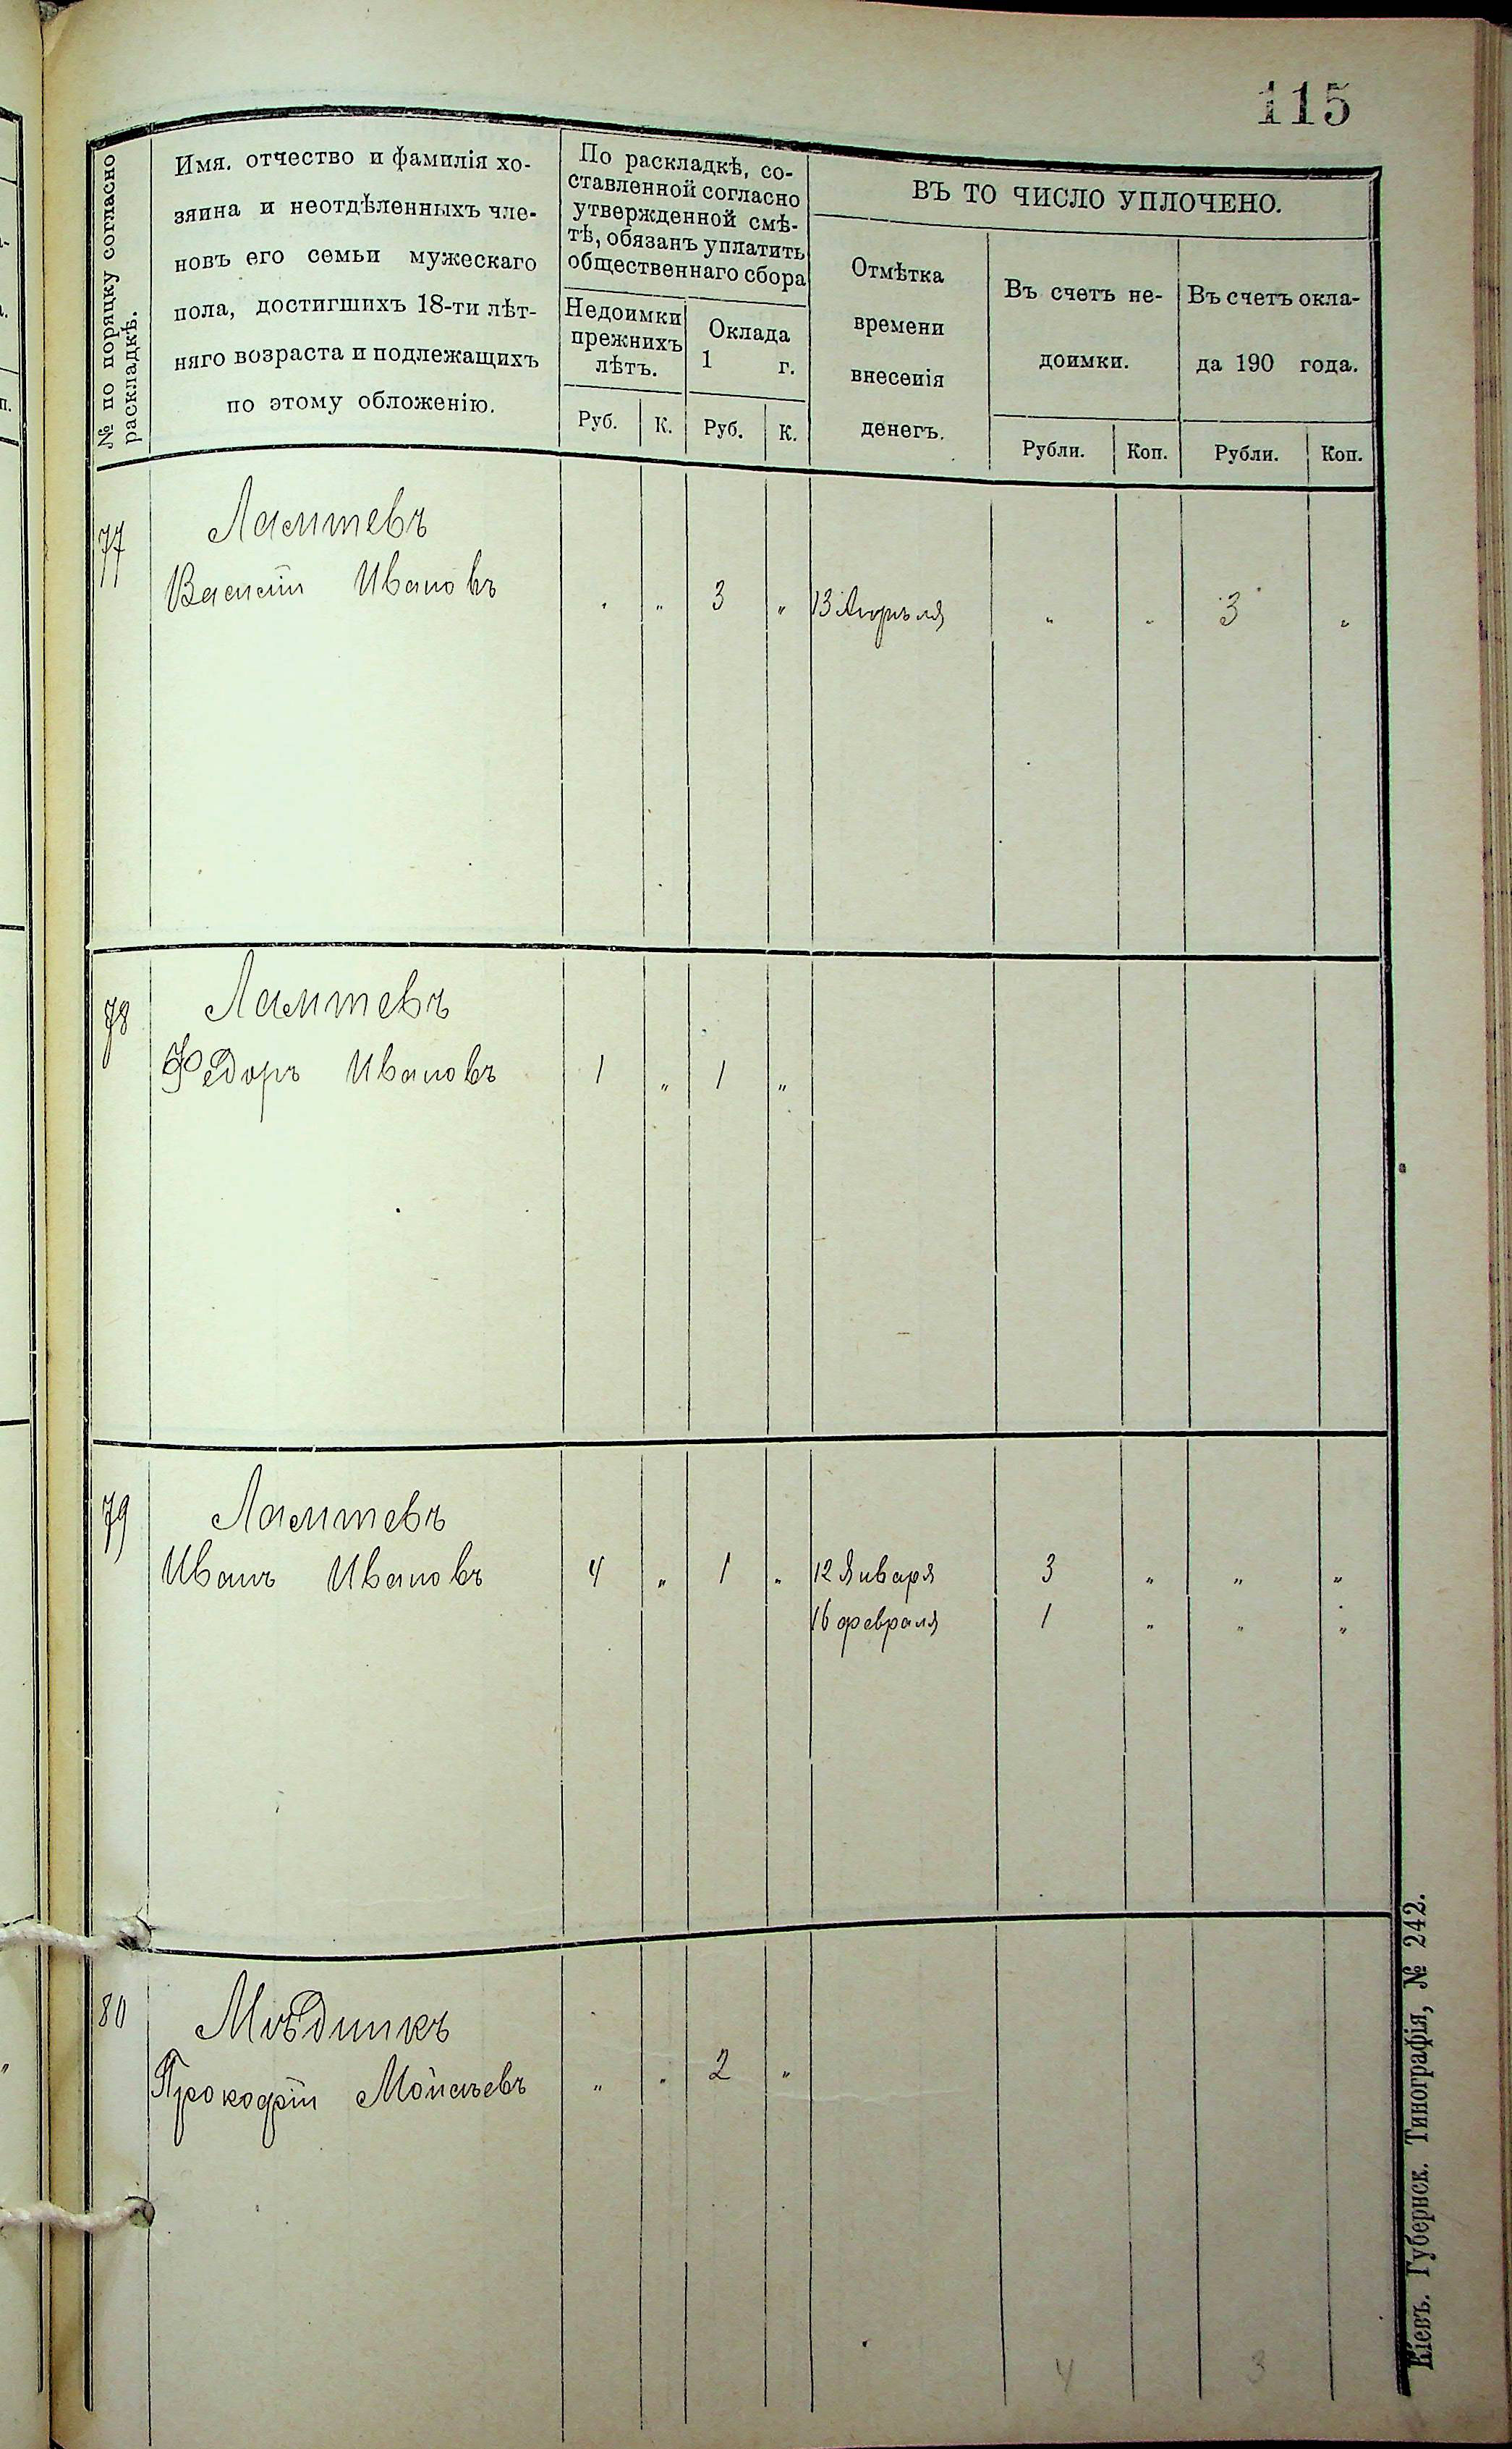 115
№ по порядку согласно
раскладкѣ.
Имя, отчество и фамилія хо-
зяина и неотдѣленныхъ чле-
новъ его семьи мужескаго
пола, достигшихъ 18-ти лѣт-
няго возраста и подлежащихъ
по этому обложенію.
По раскладкѣ, со-
ставленной согласно
утвержденной смѣ-
тѣ, обязанъ уплатить
общественнаго сбора
Недоимки
прежнихъ
лѣтъ.
Руб. К.
Оклада
1 г.
Руб. К.
ВЪ ТО ЧИСЛО УПЛОЧЕНО.
Отмѣтка
времени
внесенія
денегъ.
Въ счетъ не-
доимки.
Рубли. Коп.
Въ счетъ окла-
да 190 года.
Рубли. Коп.
77 Лаптевъ
Василій Ивановъ „ „ 3 „ 13 Апрѣля „ „ 3 „
78 Лаптевъ
Федоръ Ивановъ 1 „ 1 „
79 Лаптевъ
Иванъ Ивановъ 4 „ 1 „ 12 Января 3 „ „ „
16 февраля 1 „ „ „
80 Мѣдникъ
Прокофій Мойсѣевъ „ „ 2 „
4 3
Кіевъ. Губернск. Типографія, № 242.